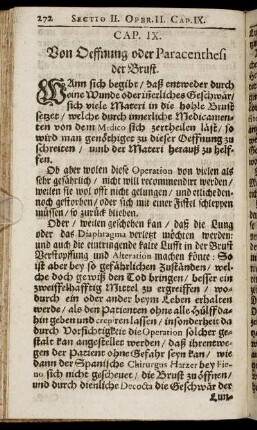 272 SECTIO II. OPER. II. CAP. IX.
CAP. IX.
Von Oeffnung oder Paracenthesi
der Brust.
WAnn sich begibt / daß entweder durch
eine Wunde oder iñerliches Geschwär /
sich viele Materi in die hohle Brust
setzet / welche durch innerliche Medicamen-
ten von dem Medico sich zertheilen läst / so
wird man genöthiget zu dieser Oeffnung zu
schreiten / und der Materi herauß zu helf-
fen.
Ob aber wolen diese Operation von vielen als
sehr gefährlich / nicht will recommendirt werden /
weilen sie wol offt nicht gelungen / und etliche den-
noch gestorben / oder sich mit einer Fistel schleppen
müssen / so zurück blieben.
Oder / weilen geschehen kan / daß die Lung
oder das Diaphragma verletzt möchten werden:
und auch die eintringende kalte Lufft in der Brust
Verstopffung und Alteration machen könte: So
ist aber bey so gefährlichen Zuständen / wel-
che doch gewiß den Tod bringen / besser ein
zweiffelhafftig Mittel zu ergreiffen / wo-
durch ein oder ander beym Leben erhalten
werde / als den Patienten ohne alle Hülff da-
hin geben und crepiren lassen / insonderheit da
durch Vorsichtigkeit die Operation solcher ge-
stalt kan angestellet werden / daß ihrentwe-
gen der Patient ohne Gefahr seyn kan / wie
dann der Spanische Chirurgus Harzer bey Fie-
no sich nicht gescheuet / die Brust zu öffnen /
und durch dienliche Decocta die Geschwär der
Lun-